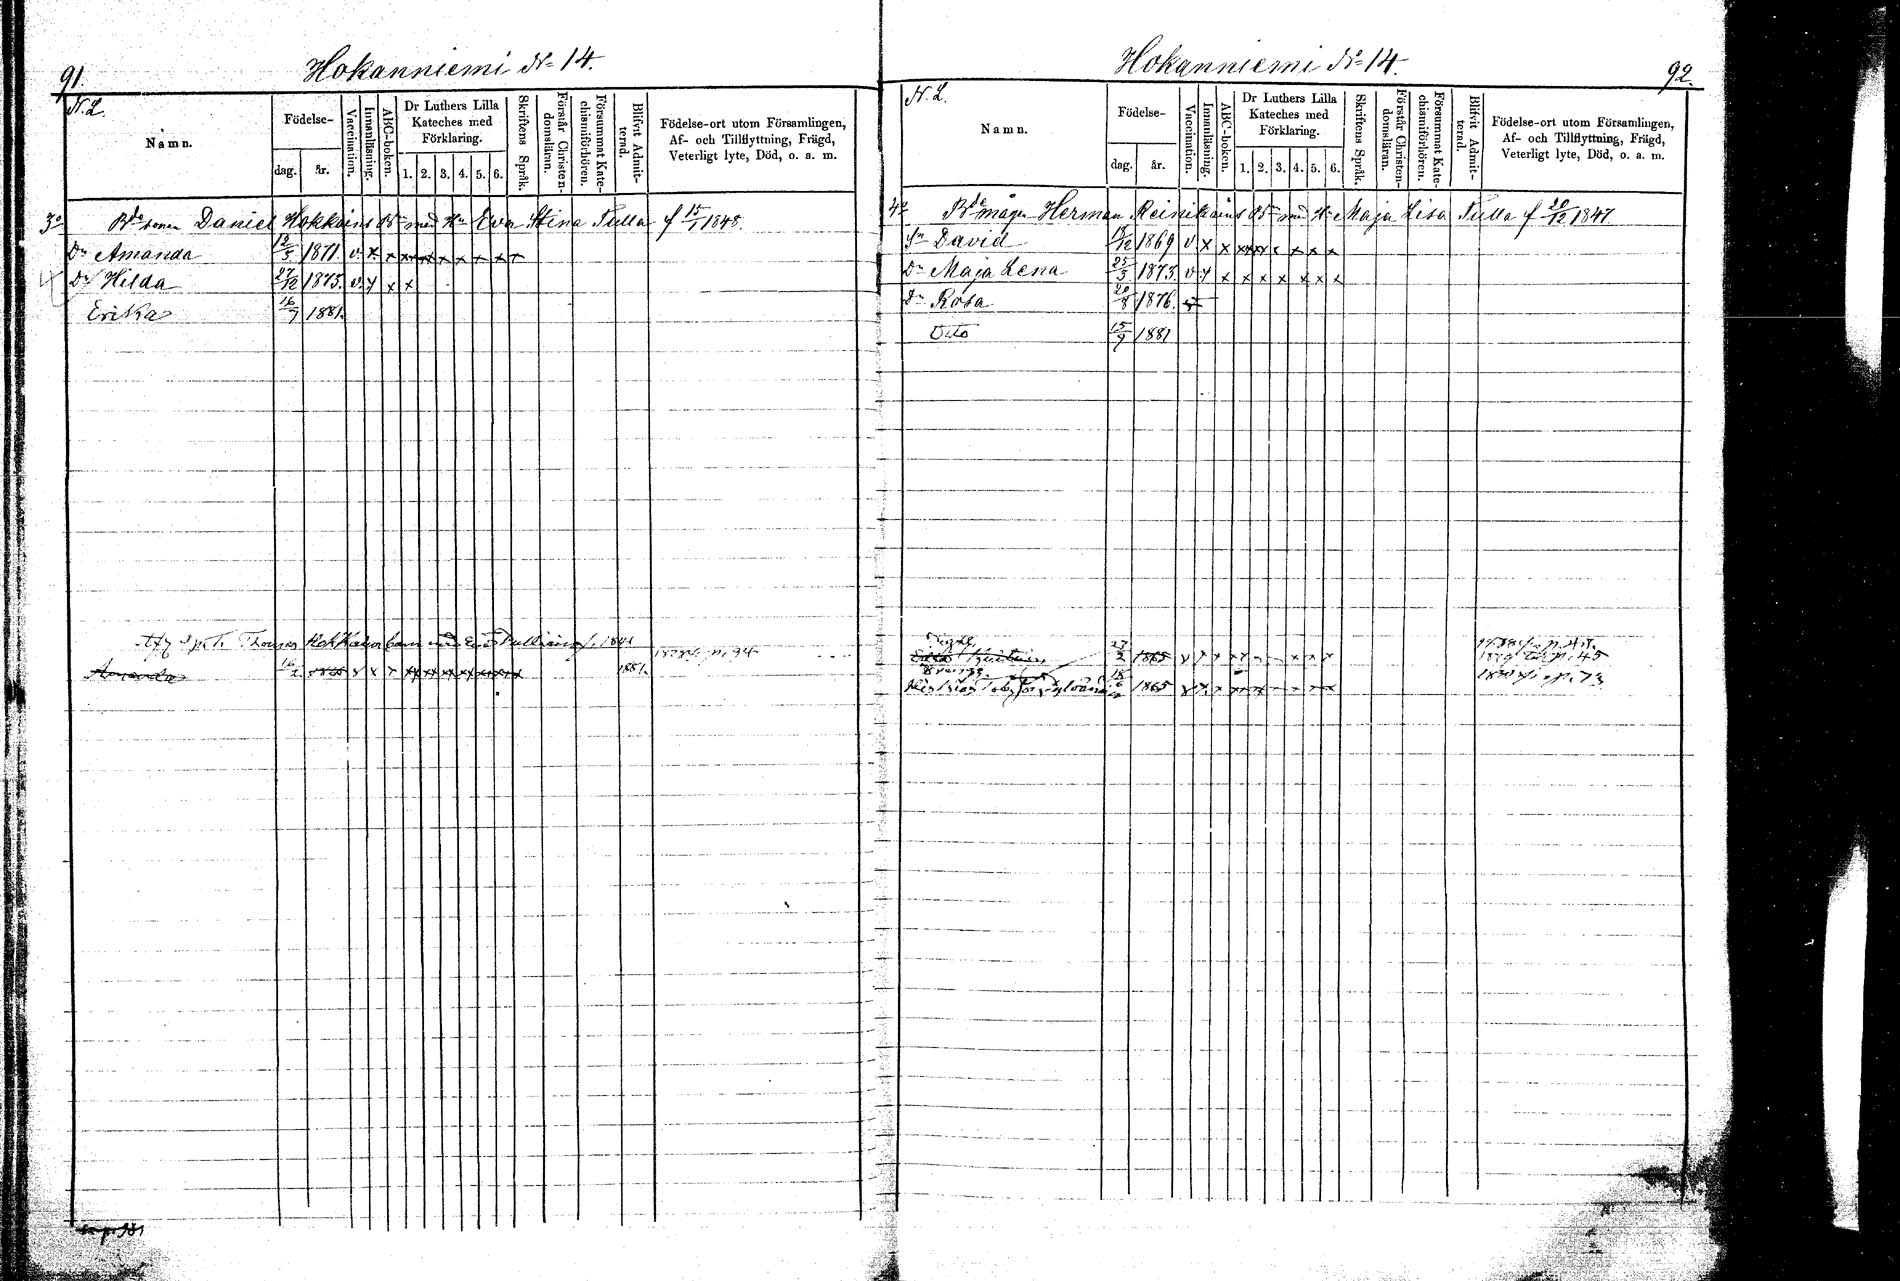 91.
Hokanniemi No 14.
N. L.
Namn.
Födelse-
dag.
år.
Vaccination.
Innanläsning.
ABC-boken.
Dr Luthers Lilla
Kateches med
Förklaring.
1. 2. 3. 4. 5. 6.
Skriftens Språk.
Förstår Christen-
domsläran.
Försummat Kate-
chismiförhören.
Blifvit Admit-
terad.
Födelse-ort utom Församlingen,
Af- och Tillflyttning, Frägd,
Veterligt lyte, Död, o. a. m.
3o Bde sonen Daniel Hokkains Bn med Hu Ewa Stina Tulla f 15/1 1848.
Dr Amanda 12/5 1871. v. x x x x x x x x x
Dr Hilda 27/12 1875. v. y x x
Erika 16/7 1881.
Thomas Hokkains barn med Eva 1841
1878 p. 94
Amanda 16/2 v x x 1881.
92.
Hokanniemi No 14.
N. L.
Namn.
Födelse-
dag.
år.
Vaccination.
Innanläsning.
ABC-boken.
Dr Luthers Lilla
Kateches med
Förklaring.
1. 2. 3. 4. 5. 6.
Skriftens Språk.
Förstår Christen-
domsläran.
Försummat Kate-
chismiförhören.
Blifvit Admit-
terad.
Födelse-ort utom Församlingen,
Af- och Tillflyttning, Frägd,
Veterligt lyte, Död, o. a. m.
4o Bde mågen Herman Reinikains Bn med Hu Maja Lisa Tulla f 20/12 1847
Sn David 18/12 1869 v x x x x x x x x
Dr Maja Lena 25/3 1873. v y x x x x x x x
Dr Rosa 20/8 1876.
Otto 15/9 1881
23/2 1865
1879 p. 45
1865
p. 73